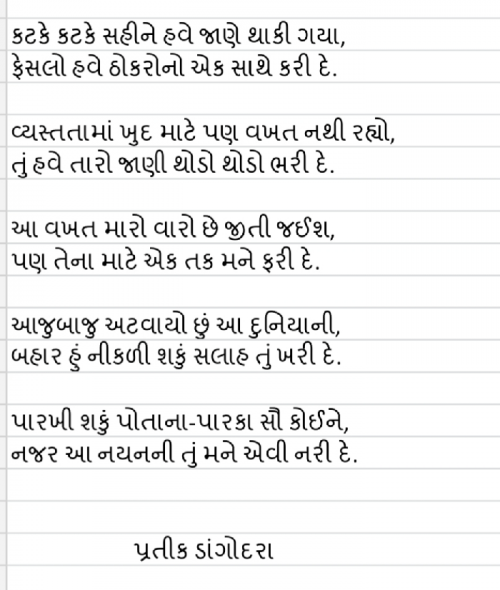 કટકે કટકે સહીને હવે જાણે થાકી ગયા,
ફેસલો હવે ઠોકરોનો એક સાથે કરી દે.
વ્યસ્તતામાં ખુદ માટે પણ વખત નથી રહ્યો,
તું હવે તારો જાણી થોડો થોડો ભરી દે.
આ વખત મારો વારો છે જીતી જઈશ,
પણ તેના માટે એક તક મને ફરી દે.
આજુબાજુ અટવાયો છું આ દુનિયાની,
બહાર હું નીકળી શકું સલાહ તું ખરી દે.
પારખી શકું પોતાના-પારકા સૌ કોઈને,
નજર આ નયનની તું મને એવી નરી દે.
પ્રતીક ડાંગોદરા